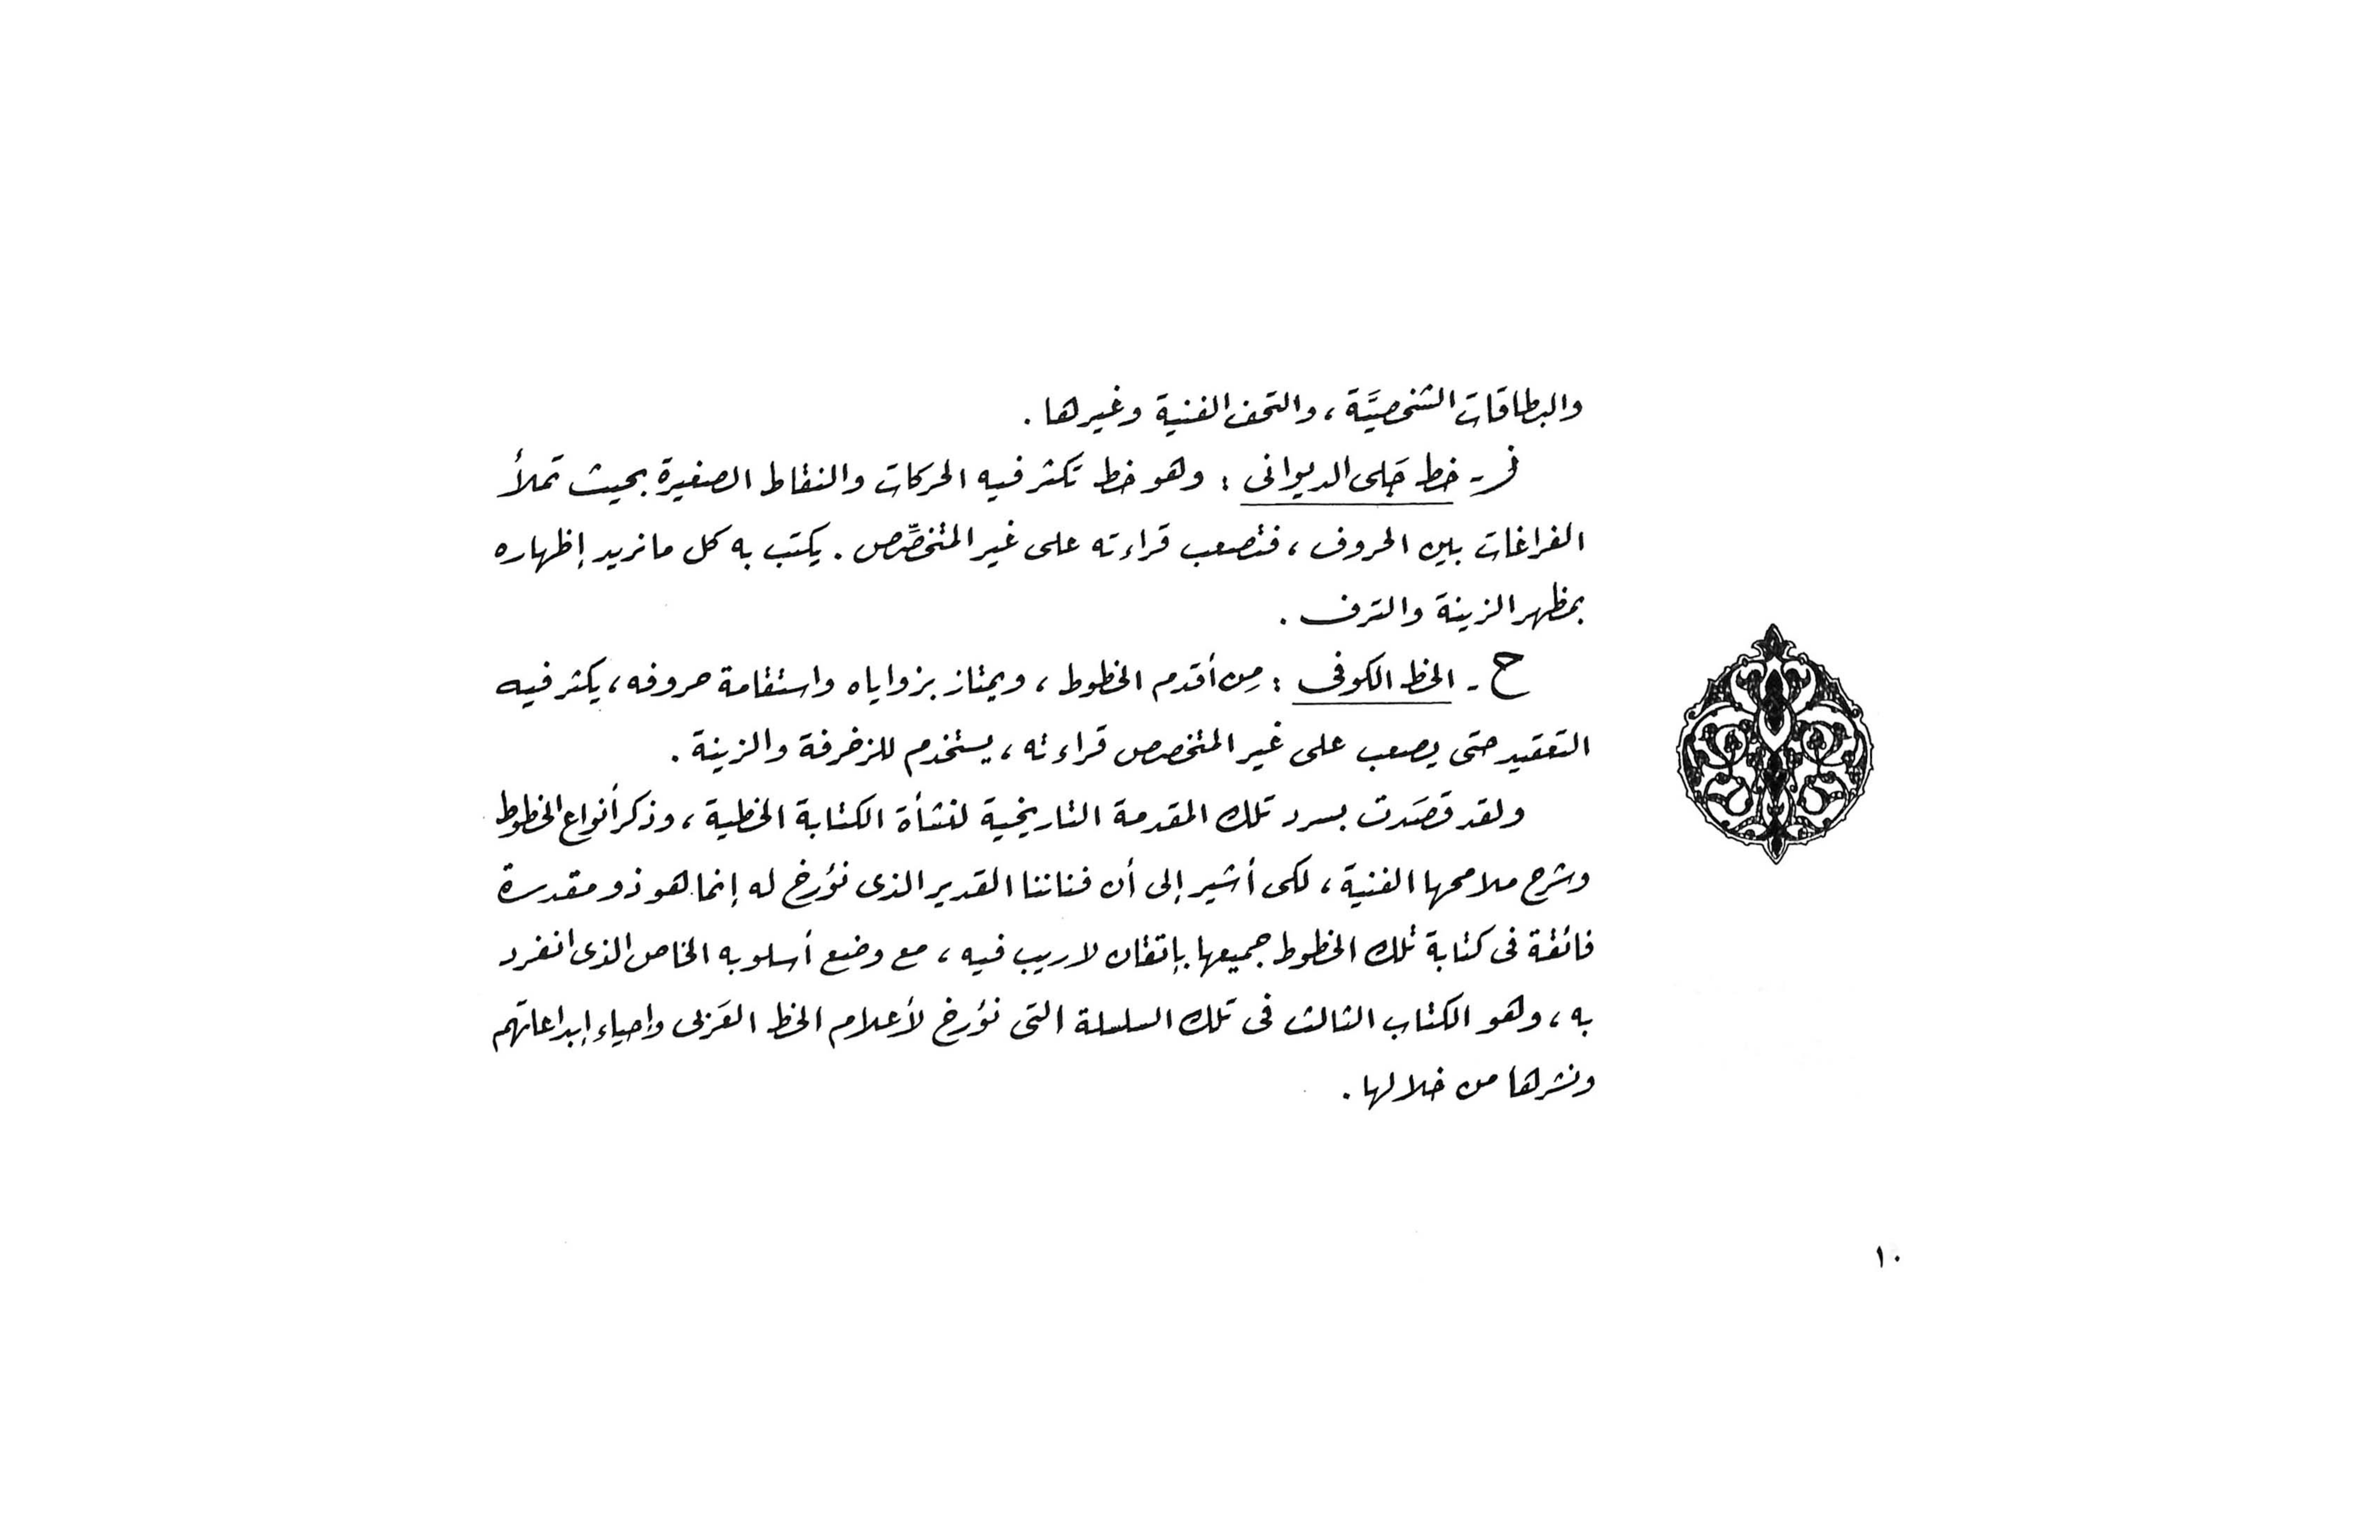 والبطاقات الشخصيَّة ، والتحف الفنية وغيرها .
ز - خط جَلى الديوانى : وهو خط تكثر فيه الحركات والنقاط الصغيرة بحيث تملأ
الفراغات بين الحروف ، فتصعب قراءته على غير المتخصِّص . يكتب به كل ما نريد إظهاره
بمظهر الزينة والترف .
ح - الخط الكوفى : مِن أقدم الخطوط ، ويمتاز بزواياه واستقامة حروفه ، يكثر فيه
التعقيد حتى يصعب على غير المتخصص قراءته ، يستخدم للزخرفة والزينة .
ولقد قصَدت بسرد تلك المقدمة التاريخية لنشأة الكتابة الخطية ، وذكر أنواع الخطوط
وشرح ملامحها الفنية ، لكى أشير إلى أن فناننا القدير الذى نؤرخ له إنما هو ذو مقدرة
فائقة فى كتابة تلك الخطوط جميعها بإتقان لا ريب فيه ، مع وضع أسلوبه الخاص الذى انفرد
به ، وهو الكتاب الثالث فى تلك السلسلة التى نؤرخ لأعلام الخط العَربى وإحياء إبداعاتهم
ونشرها من خلالها .
١٠